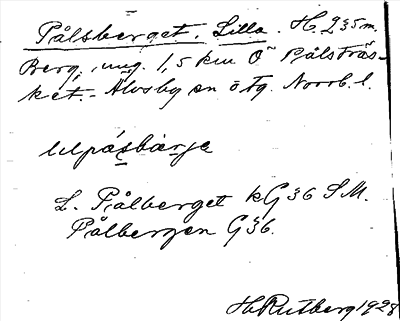 Pålsberget, Lilla. H. 235 m.
Berg, ung. 1,5 km O Pålsträs-
ket. - Älvsby sn ö tg. Norrb. l.
lilpåsbärje
L. Pålberget kG36 SM.
Pålbergen G36.
H. Rutberg 1928